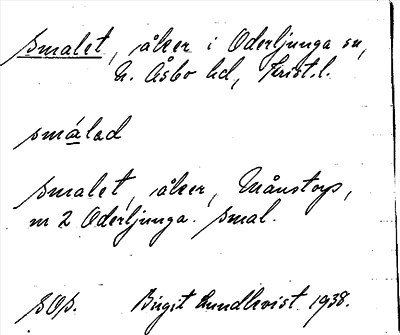 Smalet, åker i Oderljunga sn,
N. Åsbo hd, Krist.l.
smálad
Smalet, åker, Månstorp,
nr 2 Oderljunga. Smal.
SOS. Birgit Lundkvist 1938.